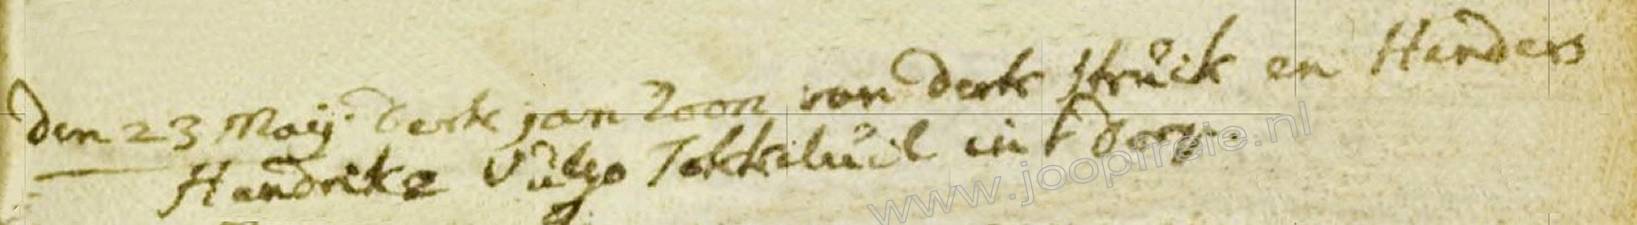 den 23 Maij Derk jan Zoon van Derk Struik en Handers
Hendrike Vulgo Tokkeluil in t Dorp.
www.joopfrele.nl